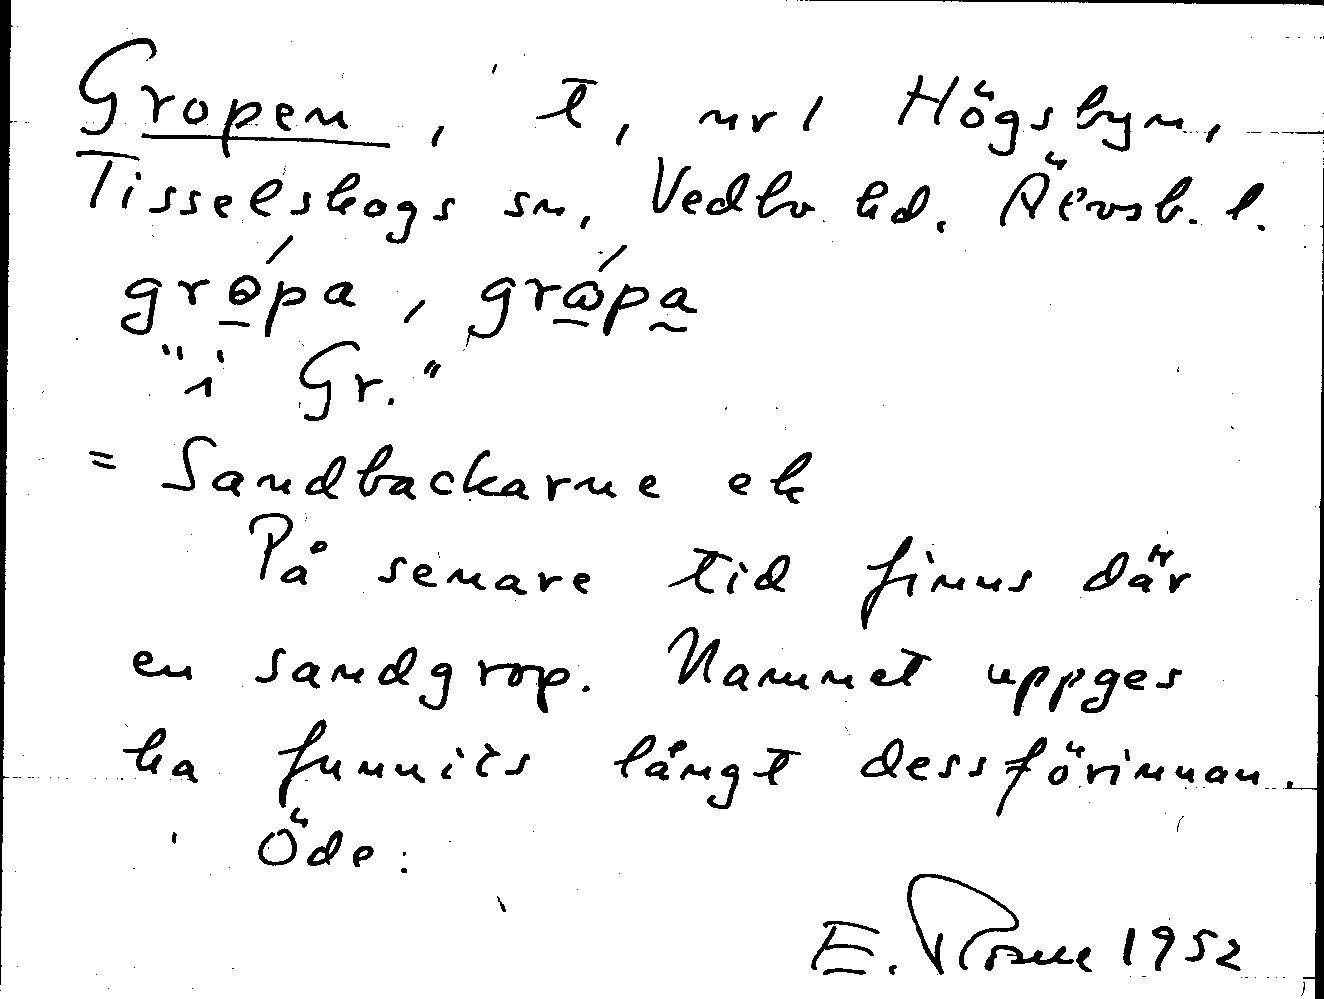 Gropen, t, nr 1 Högsbyn,
Tisselskogs sn, Vedbo hd. Älvsb. l.
grópa, grápa
"i Gr."
= Sandbackarne ek
På senare tid finns där
en sandgrop. Namnet uppges
ha funnits långt dessförinnan.
Öde.
E. 1952